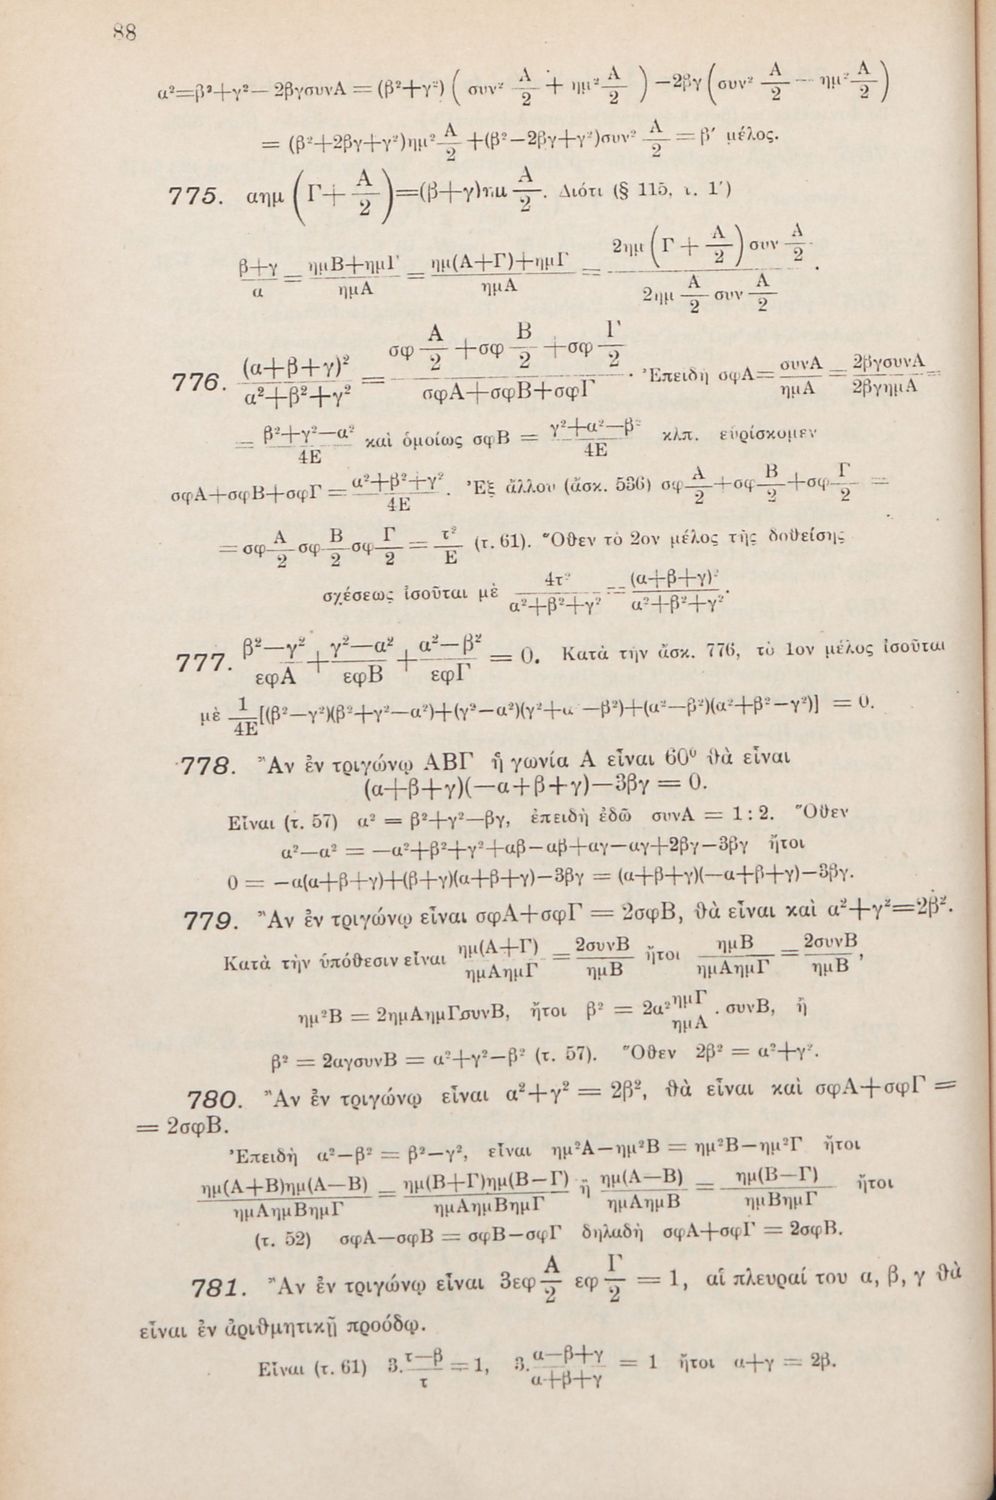 88
α²=β²+γ²—2βγσυνΑ = (β²+γ²) ( συν² Α/2 + ημ² Α/2 ) —2βγ ( συν² Α/2 — ημ² Α/2 )
= (β²+2βγ+γ²)ημ² Α/2 +(β²—2βγ+γ²)συν² Α/2 = β′ μέλος.
775. αημ ( Γ+ Α/2 )=(β+γ)ημ Α/2. Διότι (§ 115, ι. 1′)
(β+γ)/α = (ημΒ+ημΓ)/ημΑ = (ημ(Α+Γ)+ημΓ)/ημΑ = (2ημ ( Γ + Α/2 ) συν Α/2)/(2ημ Α/2 συν Α/2).
776. (α+β+γ)²/(α²+β²+γ²) = (σφ Α/2 +σφ Β/2 +σφ Γ/2)/(σφΑ+σφΒ+σφΓ). Ἐπειδὴ σφΑ= συνΑ/ημΑ = 2βγσυνΑ/2βγημΑ =
= (β²+γ²—α²)/4Ε καὶ ὁμοίως σφΒ = (γ²+α²—β²)/4Ε κλπ. εὑρίσκομεν
σφΑ+σφΒ+σφΓ = (α²+β²+γ²)/4Ε. Ἐξ ἄλλου (ἄσκ. 536) σφ Α/2 +σφ Β/2 +σφ Γ/2 =
=σφ Α/2 σφ Β/2 σφ Γ/2 = τ²/Ε (τ. 61). Ὅθεν τὸ 2ον μέλος τῆς δοθείσης
σχέσεως ἰσοῦται μὲ 4τ²/(α²+β²+γ²) = (α+β+γ)²/(α²+β²+γ²).
777. (β²—γ²)/εφΑ + (γ²—α²)/εφΒ + (α²—β²)/εφΓ = 0. Κατὰ τὴν ἄσκ. 776, τὸ 1ον μέλος ἰσοῦται
μὲ 1/4Ε [(β²—γ²)(β²+γ²—α²)+(γ²—α²)(γ²+α —β²)+(α²—β²)(α²+β²—γ²)] = 0.
778. Ἂν ἐν τριγώνῳ ΑΒΓ ἡ γωνία Α εἶναι 60⁰ θὰ εἶναι
(α+β+γ)(—α+β+γ)—3βγ = 0.
Εἶναι (τ. 57) α² = β²+γ²—βγ, ἐπειδὴ ἐδῶ συνΑ = 1 : 2. Ὅθεν
α²—α² = —α²+β²+γ²+αβ—αβ+αγ—αγ+2βγ—3βγ ἤτοι
0 = —α(α+β+γ)+(β+γ)(α+β+γ)—3βγ = (α+β+γ)(—α+β+γ)—3βγ.
779. Ἂν ἐν τριγώνῳ εἶναι σφΑ+σφΓ = 2σφΒ, θὰ εἶναι καὶ α²+γ²=2β².
Κατὰ τὴν ὑπόθεσιν εἶναι ημ(Α+Γ)/ημΑημΓ = 2συνΒ/ημΒ ἤτοι ημΒ/ημΑημΓ = 2συνΒ/ημΒ,
ημ²Β = 2ημΑημΓσυνΒ, ἤτοι β² = 2α² ημΓ/ημΑ . συνΒ, ἢ
β² = 2αγσυνΒ = α²+γ²—β² (τ. 57). Ὅθεν 2β² = α²+γ².
780. Ἂν ἐν τριγώνῳ εἶναι α²+γ² = 2β², θὰ εἶναι καὶ σφΑ+σφΓ =
= 2σφΒ.
Ἐπειδὴ α²—β² = β²—γ², εἶναι ημ²Α—ημ²Β = ημ²Β—ημ²Γ ἤτοι
ημ(Α+Β)ημ(Α—Β)/ημΑημΒημΓ = ημ(Β+Γ)ημ(Β—Γ)/ημΑημΒημΓ ἢ ημ(Α—Β)/ημΑημΒ = ημ(Β—Γ)/ημΒημΓ ἤτοι
(τ. 52) σφΑ—σφΒ = σφΒ—σφΓ δηλαδὴ σφΑ+σφΓ = 2σφΒ.
781. Ἂν ἐν τριγώνῳ εἶναι 3εφ Α/2 εφ Γ/2 = 1, αἱ πλευραί του α, β, γ θὰ
εἶναι ἐν ἀριθμητικῇ προόδῳ.
Εἶναι (τ. 61) 3. (τ—β)/τ = 1, 3. (α—β+γ)/(α+β+γ) = 1 ἤτοι α+γ = 2β.